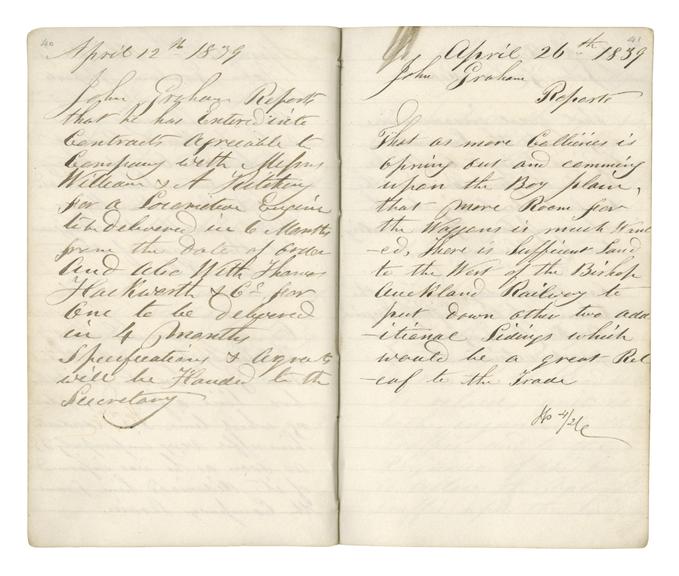 40
April 12th 1839
John Graham Reports
that he has entered into
Contracts Agreeable to
Company with Messrs
William & A Kitching
for a Locomotive Engine
to be Delivered in 6 Months
from the Date of order
And also With Thomas
Hackworth & Co for
One to be Delivered
in 4 Months
Specifications &
will be Handed to the
Secretary
41
April 26th 1839
John Graham
Reports
That as more Collieries is
opning out and comming
upon the Boy plain,
that more Room for
the Waggons is much Want
-ed, There is Sufficent Land
to the West of the Bishop
Auckland Railway to
put down other two add
-itional Sidings which
would be a great Rel
-eaf to the Trade